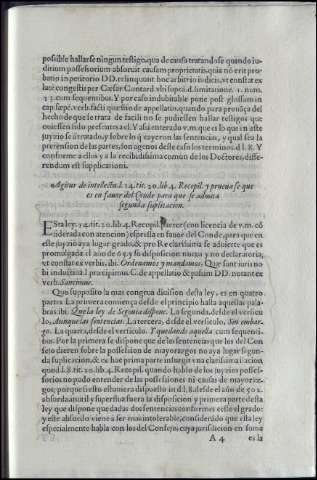 possible hallarse ningun testigo, qua de causa tratandose quando iu-
ditium possessorium absorbit causam proprietatis, quia nõ erit pro-
batio in petitorio DD. relinquunt hoc arbitrio iudicis, vt constat ex
late congestis per Cæsar Contard. vbi supcà d. limitatione. 1. num.
33. cum sequentibus. Y por caso indubitable pone post glossam in
cap. sæpè. verb. facti quæstio de appellatio. quando para prouãça del
hecho de que se trata de facili no se pudiessen hallar testigos que
ouiessen sido presentes a el. Y assi entendo v. m. que es lo que en este
juyzio se a tratado, y sobre lo q̃ cayeron las sentencias, y qual sea la
pretension de las partes, son agenos deste caso los terminos d. l. 8. Y
conforme a ellos y a la recibidissima comun de los Doctores, diffe-
rendum est supplicationi.
Agitur de intellectu l. 14. tit. 20. lib. 4. Recopil. y prueua se que
es en fauor del Conde para que se admita
segunda suplicacion.
Esta ley. 14. tit. 20. lib. 4. Recopil. parece (con licencia de v. m. cõ
siderada con atencion) espressa en fauor del Conde, para que en
este juyzio aya lugar grado, & pro Re clarissima se aduierte que es
promulgada el año de 65. y so disposicion nueua y no declaratoria,
vt constat ex verbis, ibi. Ordenamos y mandamos. Que son iuris no-
bi inductina l. precipimus C. de appellatio & passim DD. notant ex
verb. Sancimus.
Que supposito la mas congrua diuision desta ley, es en quatro
partes. La primera comiença desde el principio hasta aquellas pala-
bras ibi. Que la ley de Segouia dispone. La segunda, desde el versicu-
lo, Aunque las sentencias. La tercera, desde el versiculo, Sin embar-
go. La quarta, desde el versiculo. Y quedando aquella con sequenti-
bus. Por la primera se dispone que de las sentencias que los del Con
sejo dieren sobre la possession de mayorazgos no aya lugar segun-
da suplicacion, & ex hoc prima parte insurgit vna clarissima illacion,
quod l. 8. tit. 20. lib. 4. Recopil. quando hablo de los juyzios posses-
sorios no pudo entender de las possessiones ni causas de mayoraz-
gos, porque si esto estuuiera dispuesto in d. l. 8. desde el año de 502.
absorda inutil y superflua fuera la disposicion y primera parte desta
ley que dispone que dadas dos sentencias conformes cesse el grado:
y este absurdo viene a ser mas intolerable, considerado que esta ley
especialmente habla con los del Consejo, cuya jurisdicion en suma
A 4 es la